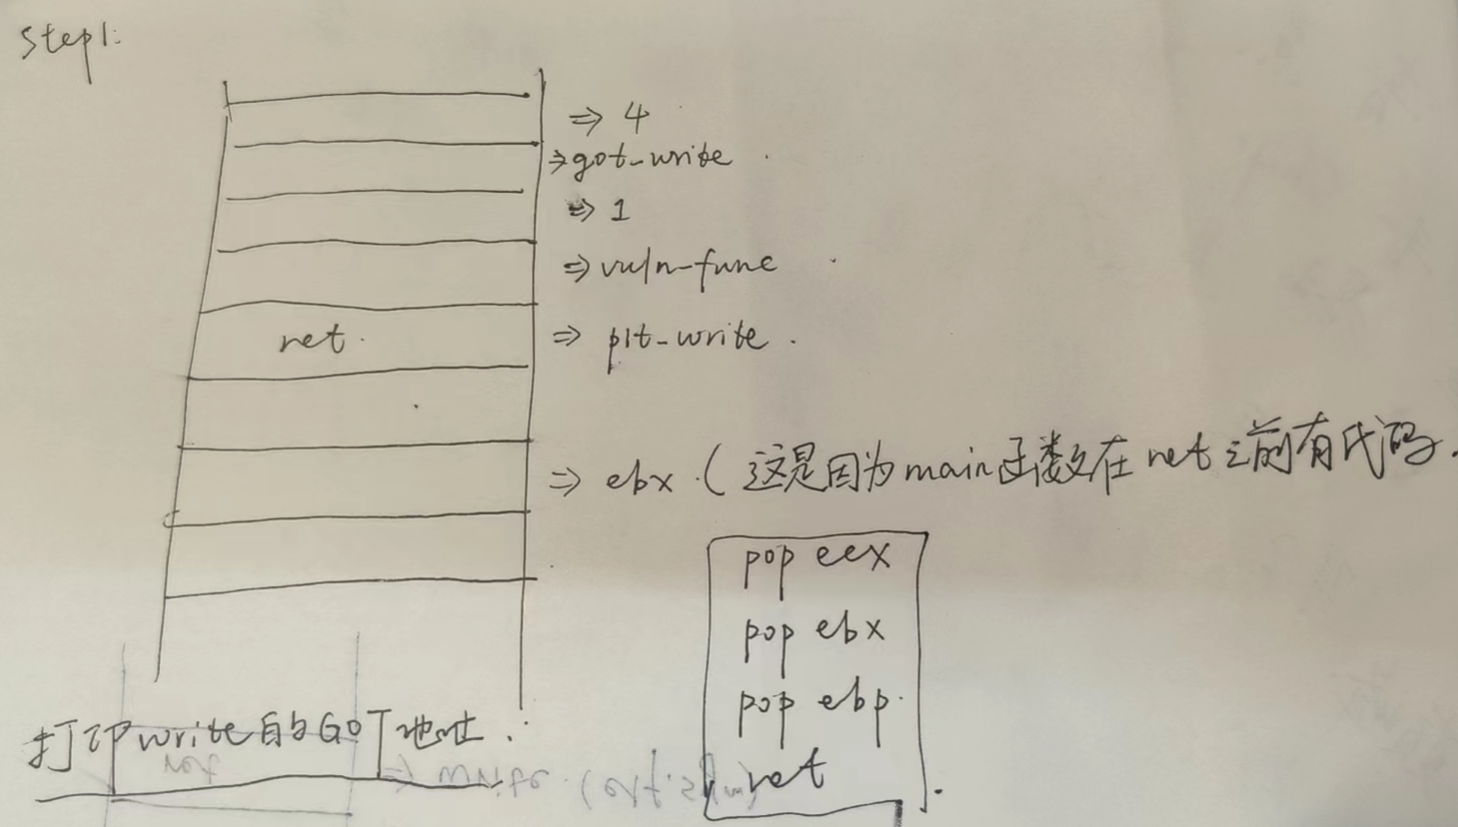 step1:
⇒ 4
⇒ got-write
⇒ 1
⇒ vuln-func
ret.
⇒ plt-write.
⇒ ebx.(这是因为main函数在ret之前有代码.
pop eex
pop ebx
pop ebp.
ret
打印write的GOT地址.